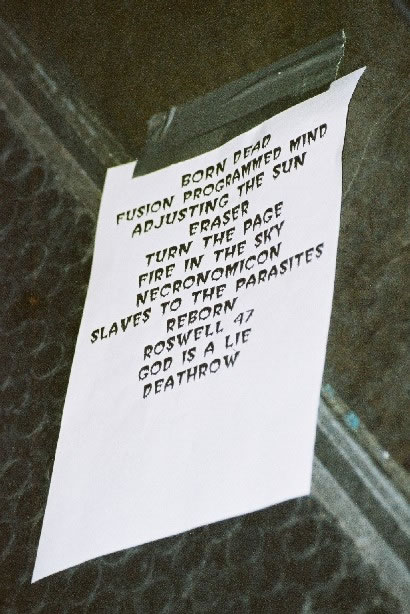 BORN DEAD
FUSION PROGRAMMED MIND
ADJUSTING THE SUN
ERASER
TURN THE PAGE
FIRE IN THE SKY
NECRONOMICON
SLAVES TO THE PARASITES
REBORN
ROSWELL 47
GOD IS A LIE
DEATHROW